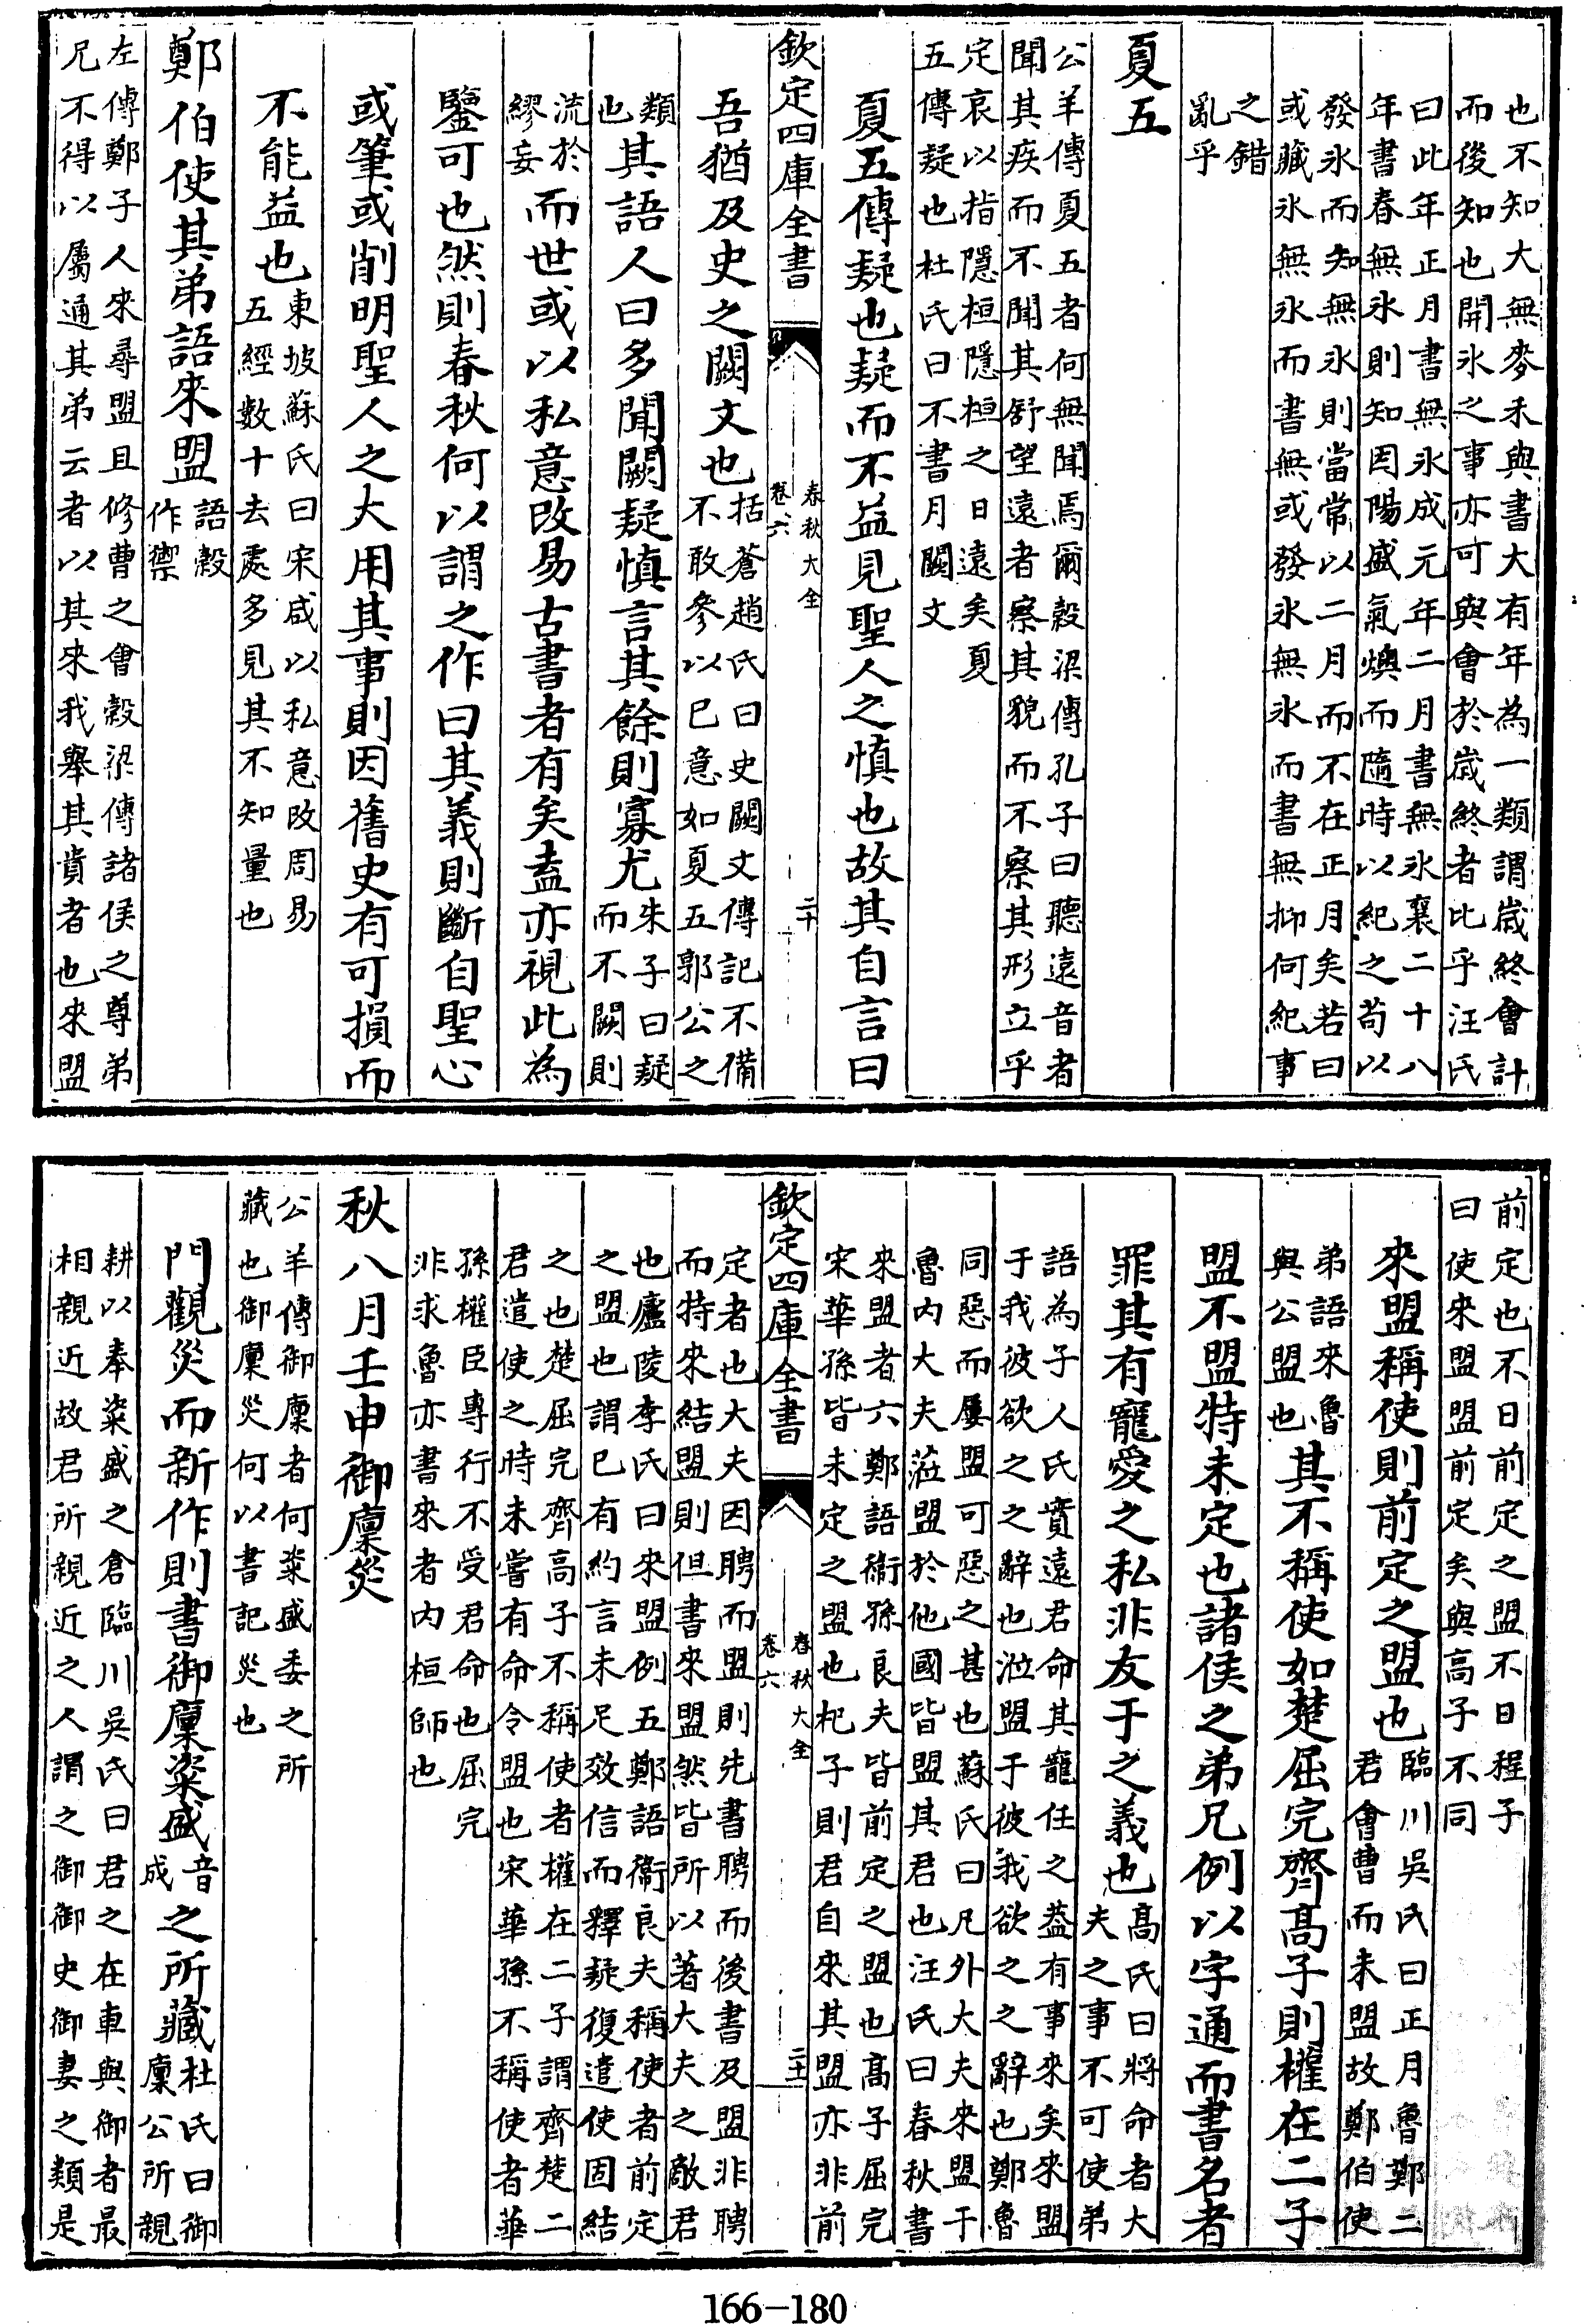 也不知大無麥禾與書大有年為一類謂歲終會計
而後知也開氷之事亦可與會於歲終者比乎汪氏
曰此年正月書無氷成元年二月書無氷襄二十八
年書春無氷則知因陽盛氣燠而隨時以紀之苟以
發氷而知無氷則當常以二月而不在正月矣若曰
或藏氷無氷而書無或發氷無氷而書無抑何紀事
之錯
亂乎
夏五
公羊傳夏五者何無聞焉爾穀梁傳孔子曰聽遠音者
聞其疾而不聞其舒望遠者察其貌而不察其形立乎
定哀以指隱桓隱桓之日遠矣夏
五傳疑也杜氏曰不書月闕文
夏五傳疑也疑而不益見聖人之慎也故其自言曰
欽定四庫全書
春秋大全
卷六
二十
吾猶及史之闕文也
括蒼趙氏曰史闕文傳記不備
不敢參以已意如夏五郭公之
類
也
其語人曰多聞闕疑慎言其餘則寡尤
朱子曰疑
而不闕則
流於
繆妄
而世或以私意改易古書者有矣盍亦視此為
鑒可也然則春秋何以謂之作曰其義則斷自聖心
或筆或削明聖人之大用其事則因舊史有可損而
不能益也
東坡蘇氏曰宋咸以私意改周易
五經數十去處多見其不知量也
鄭伯使其弟語來盟
語穀
作禦
左傳鄭子人來尋盟且修曹之會穀梁傳諸侯之尊弟
兄不得以屬通其弟云者以其來我舉其貴者也來盟
前定也不日前定之盟不日程子
曰使來盟盟前定矣與高子不同
來盟稱使則前定之盟也
臨川吳氏曰正月魯鄭二
君會曹而未盟故鄭伯使
弟語來魯
與公盟也
其不稱使如楚屈完齊高子則權在二子
盟不盟特未定也諸侯之弟兄例以字通而書名者
罪其有寵愛之私非友于之義也
髙氏曰將命者大
夫之事不可使弟
語為子人氏賁遠君命其寵任之葢有事來矣來盟
于我彼欲之之辭也涖盟于彼我欲之之辭也鄭魯
同惡而屢盟可惡之甚也蘇氏曰凡外大夫來盟于
魯内大夫蒞盟於他國皆盟其君也汪氏曰春秋書
來盟者六鄭語衛孫良夫皆前定之盟也高子屈完
宋華孫皆未定之盟也杞子則君自來其盟亦非前
欽定四庫全書
春秋大全
卷六
二十一
定者也大夫因聘而盟則先書聘而後書及盟非聘
而特來結盟則但書來盟然皆所以著大夫之敵君
也廬陵李氏曰來盟例五鄭語衛良夫稱使者前定
之盟也謂已有約言未足效信而釋疑復遣使固結
之也楚屈完齊高子不稱使者權在二子謂齊楚二
君遣使之時未嘗有命令盟也宋華孫不稱使者華
孫權臣專行不受君命也屈完
非求魯亦書來者内桓師也
秋八月壬申御廩災
公羊傳御廩者何粢盛委之所
藏也御廩災何以書記災也
門觀災而新作則書御廩粢盛
音
成
之所藏
杜氏曰御
廩公所親
耕以奉粢盛之倉臨川吳氏曰君之在車與御者最
相親近故君所親近之人謂之御御史御妻之類是
166-180